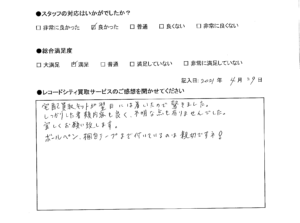 ●スタッフの対応はいかがでしたか?
□非常に良かった ☑良かった □普通 □良くない □非常に良くない
●総合満足度
□大満足 ☑満足 □普通 □満足していない □非常に満足していない
記入日:2021年 4月29日
●レコードシティ買取サービスのご感想を聞かせてください
宅配買取キットが翌日には着いたので驚きました。
しっかりした書類内容も良く、不明な点も有りませんでした。
宜しくお願い致します。
ボールペン、梱包テープまで付いているのは親切ですネ!